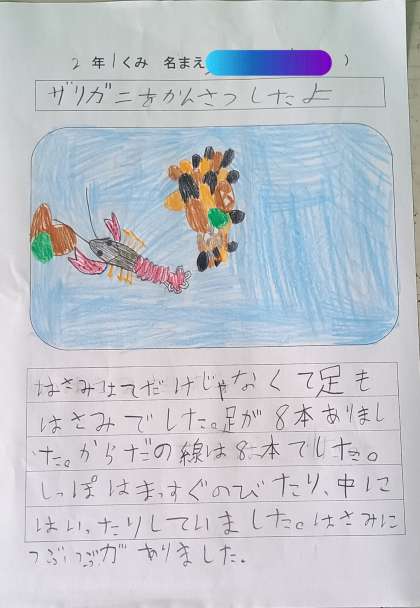 2 年 1 くみ 名まえ )
ザリガニをかんさつしたよ
はさみはてだけじゃなくて足も
はさみでした。足が8本ありまし
た。からだの線は8本でした。
しっぽはまっすぐのびたり、中に
はいったりしていました。はさみに
つぶつぶがありました。